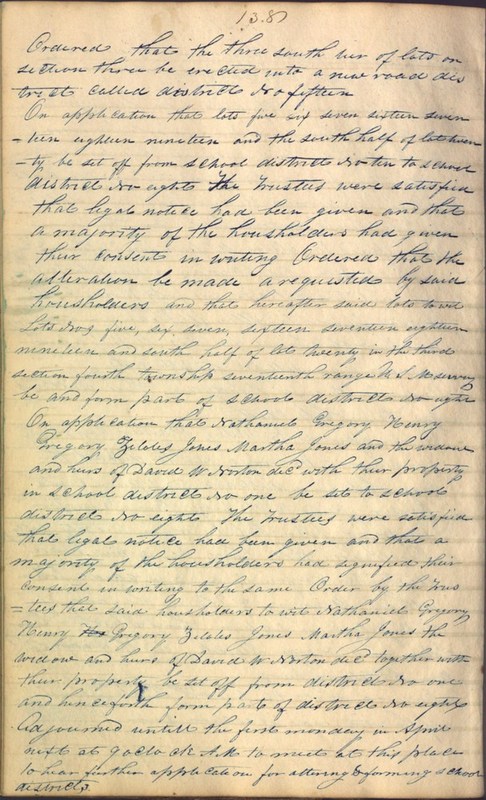 138
Ordered that the three south tier of lots on
section three be erected into a new road dis
trict called district No fifteen
On application that lots five six seven sixteen seven
-teen eighteen nineteen and the south half of lot twen
-ty be set off from school district No ten to school
district No eight The Trustees were satisfied
that legal notice had been given and that
a majority of the housholders had given
their consent in writing Ordered that the
alteration be made as requested by said
housholders and that hereafter said lots to wit
Lots No s five, six seven, sixteen seventeen eighteen
nineteen and south half of lot twenty in the third
section fourth township seventeenth range U. S. M survey
be and form part of school district No eight
On application that Nathaniel Gregory Henry
Gregory Jones Martha Jones and the widow
and heirs of David W Norton decd with their property
in school district No one be set to school
district No eight The Trustees were satisfied
that legal notice had been given and that a
majority of the housholders had signified their
consent in writing to the same Order by the Trus
=tees that said housholders to wit Nathaniel Gregory
Henry Gregory Jones Martha Jones the
widow and heirs of David W Norton decd together with
their property be set off from district No one
and henceforth form part of district No eight
Adjourned untill the first monday in April
next at 9 oclock AM to meet at this place
to hear further application for altering & forming school
districts.